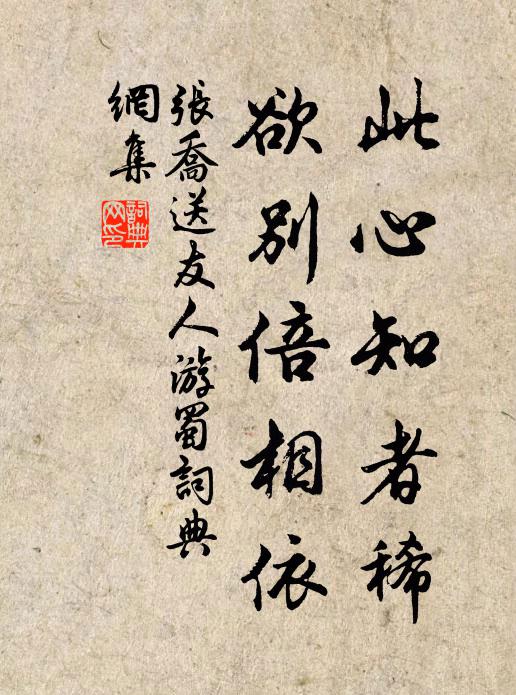 此心知者稀
欲別倍相依
張喬送友人游蜀詞典
網集
詞典
网印